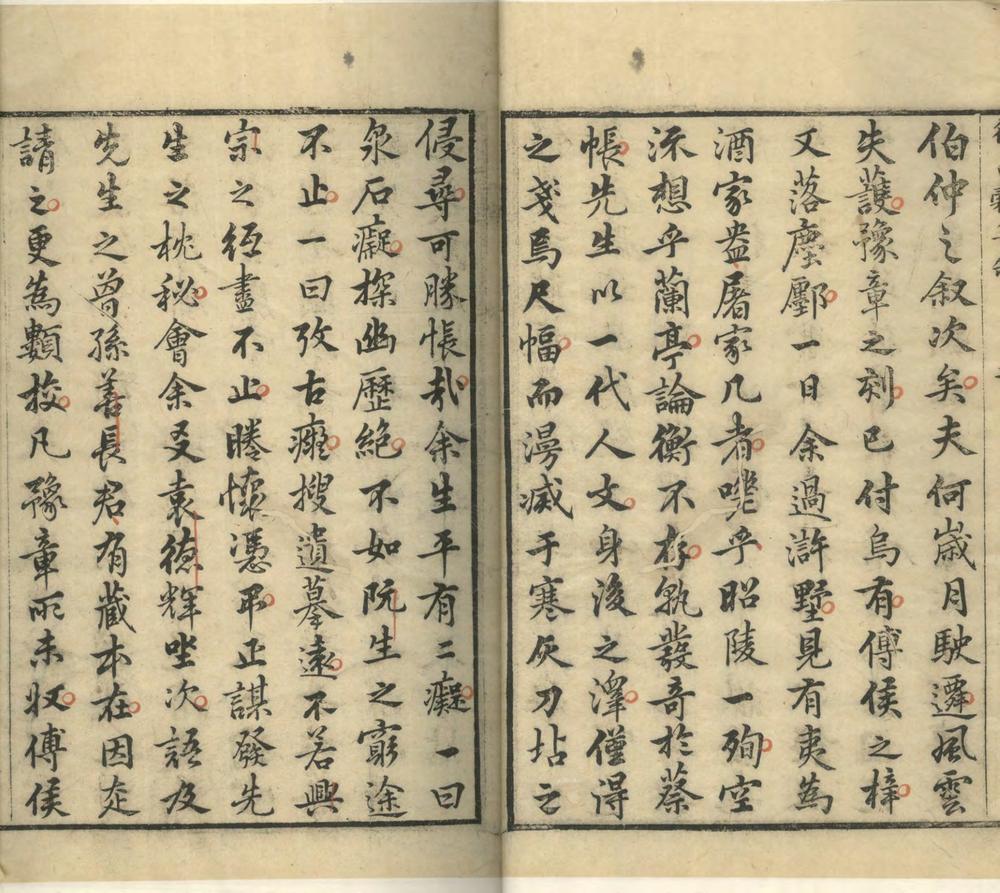 伯仲之叙次矣夫何歲月駛遷風雲
失護豫章之刻已付烏有傅侯之梓
又落塵酈一日余過滸墅見有夷為
酒家盎屠家几者嘆乎昭陵一殉空
添想乎蘭亭論衡不存孰發奇於蔡
帳先生以一代人文身後之澤僅得
之戔焉尺幅而漫滅于寒灰刀坫之
侵尋可勝悵哉余生平有二癡一曰
泉石癡探幽歷絶不如阮生之窮途
不止一曰攷古癡搜遺摹遠不若興
宗之經盡不止眷懷憑弔正謀發先
生之枕秘會余友袁德輝坐次語及
先生之曾孫善長君有藏本在因走
請之更為顆挍凡豫章所未收傅侯